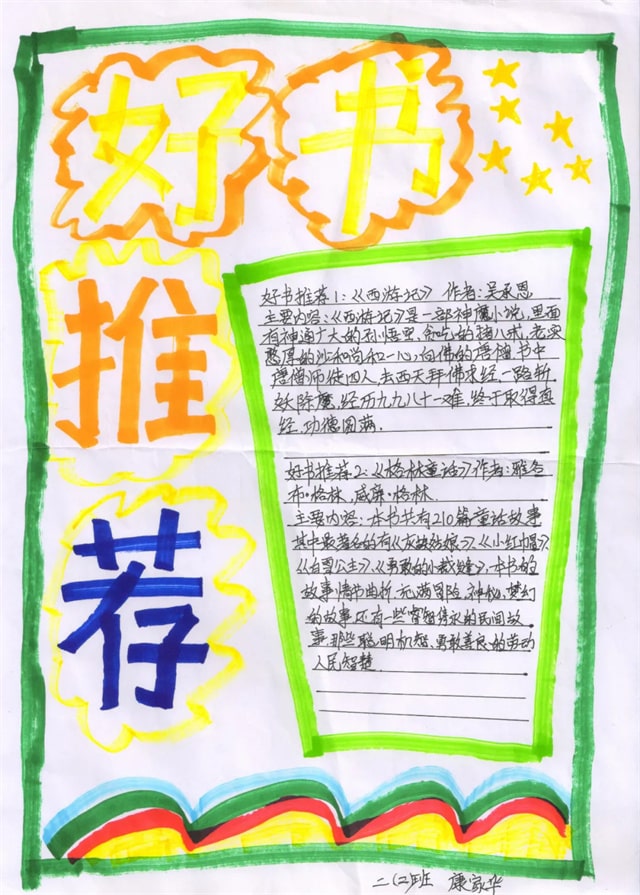 好书
推
荐
好书推荐1:《西游记》 作者:吴承恩
主要内容:《西游记》是一部神魔小说,里面
有神通广大的孙悟空、贪吃的猪八戒、老实
憨厚的沙和尚和一心向佛的唐僧。书中
唐僧师徒四人,去西天拜佛求经,一路斩
妖除魔,经历九九八十一难,终于取得真
经,功德圆满.
好书推荐2:《格林童话》作者:雅各
布·格林,威廉·格林.
主要内容:本书共有210篇童话故事
其中最著名的有《灰姑娘》、《小红帽》、
《白雪公主》、《勇敢的小裁缝》.本书的
故事情节曲折,充满冒险、神秘、梦幻
的故事还有一些睿智隽永的民间故
事那些聪明机智、勇敢善良的劳动
人民智慧
二(2)班 康家华